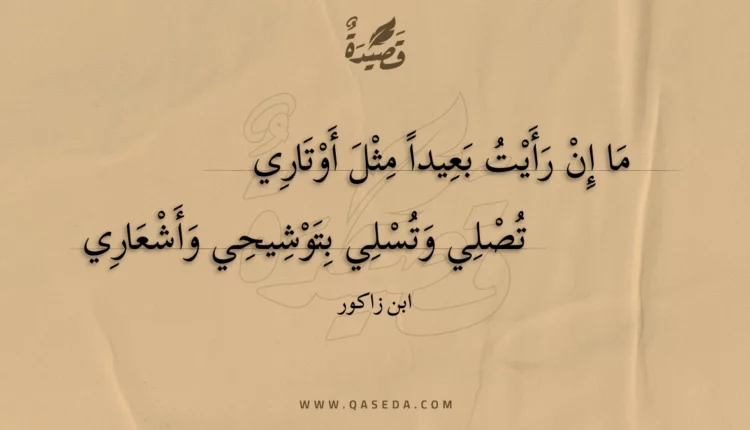 قَصِيْدَةٌ
مَا إِنْ رَأَيْتُ بَعِيداً مِثْلَ أَوْتَارِي
تُصْلِي وَتُسْلِي بِتَوْشِيحِي وَأَشْعَارِي
ابن زاكور
WWW.QASEDA.COM